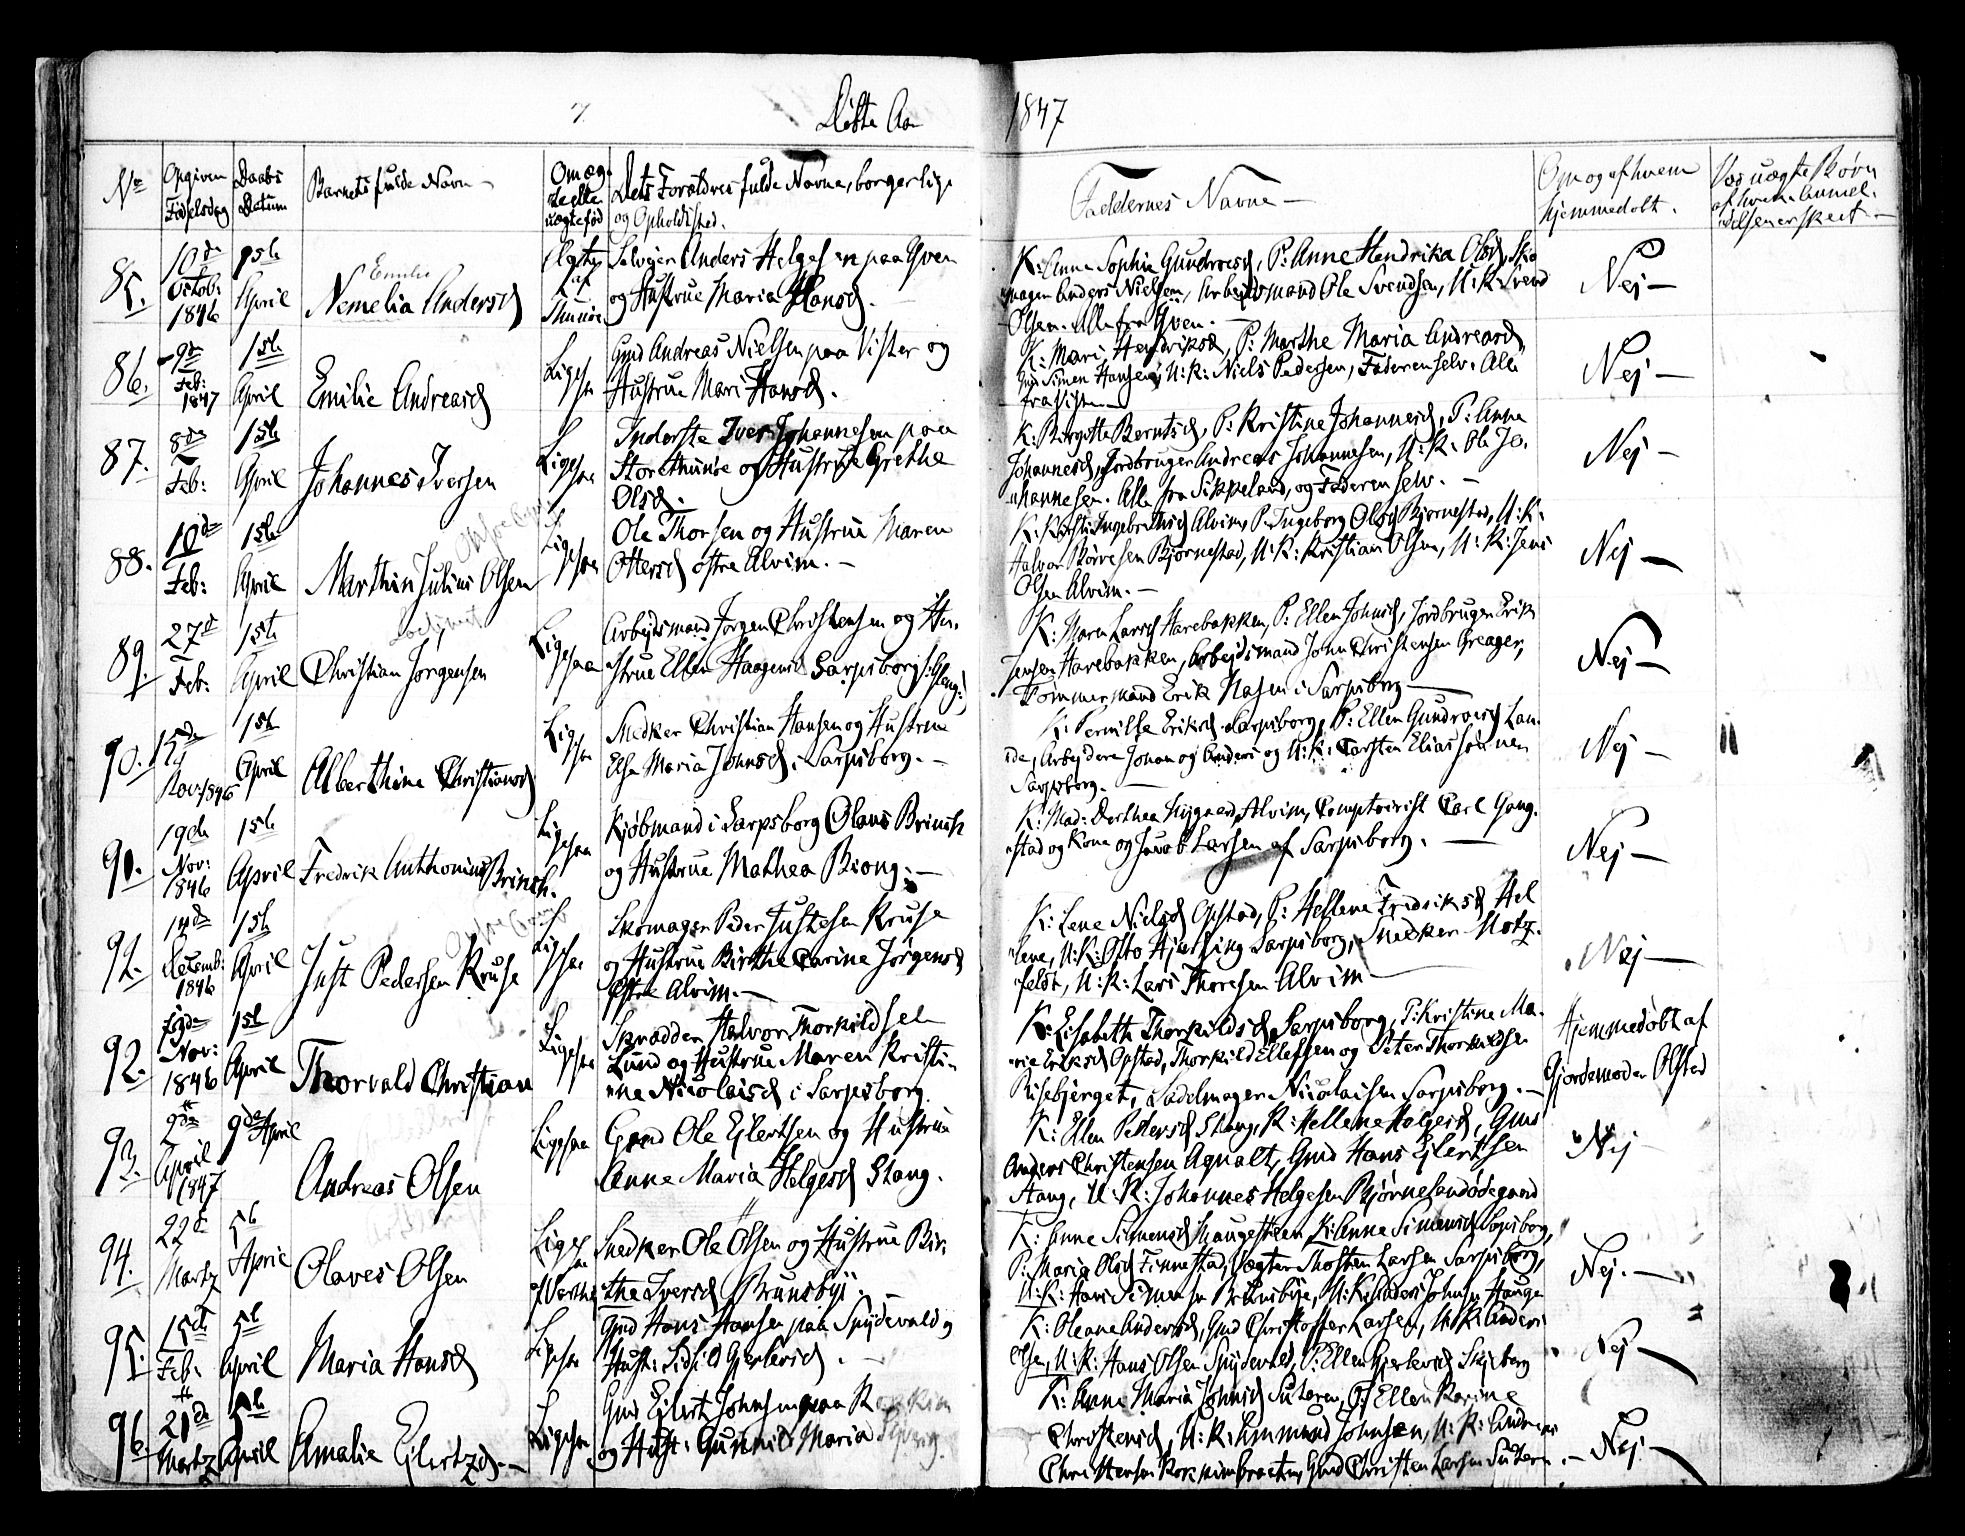 Døbte Aar 1847
No
Opgiven Fødselsdag
Daabs Datum
Barnets fulde Navn
Om ægte eller uægtefød
Dets Forældres fulde Navne, borgerlige
og Opholdssted.
Faddernes Navne
Om og af hvem
hjemmedøbt.
Ved uægte Børn
af hvem Anmel-
delsen er skeet
85. 10de Octob: 1846
April
Emilie
Nemelia Andersd
Selveier Anders Helgesen paa Yven
og Hustrue Maria Hansd.
K: Anna Sophia Gundroesd, P: Anne Hendrika Olsd, Sko
magen Anders Nielsen, Arbeidsmand Ole Svendsen, U:K: Svend
Olsen. Alle fra Yven.
Nej
86. 9de Feb: 1847
1ste April
Emilie Andreasd
Ligesaa
Gmd Andreas Nielsen paa Vister og
Hustrue Mari Hansd.
K: Mari Hendriksd, P: Marthe Maria Andreasd,
Gmd Simen Hansen, U:K: Niels Pedersen, Faderen selv. Alle
fra Vister
Nej
87. 8de Feb:
1ste April
Johannes Iversen
Ligesaa
Inderste Iver Johannesen paa
Store Thunøe og Hustrue Grethe
Olsd.
K: Birgitte Berntsd, P: Kristine Johannesd, P: Anna
Johannesd, Jordbruger Andreas Johannesen, U:K: Ole Jo-
hannesen. Alle fra Sikkeland, og Faderen selv.
Nej
88. 10de Feb:
1ste April
Marthin Julius Olsen
Ligesaa
Ole Thorsen og Hustrue Maren
Ottersd østre Alvim.
K: Kirsti Ingebretsd Alvim, P: Ingeborg Olsd Bjørnestad, U:K:
Halvor Børresen Bjørnestad, U:K: Kristian Olsen, U:K: Jens
Olsen Alvim.
Nej
89. 27de Feb:
1ste April
Christian Jørgensen
Ligesaa
Arbejdsmand Jørgen Christensen og Hu-
strue Ellen Haagensd Sarpsborg
K: Maren Larsd Harebakken, P: Ellen Johnsd, Jordbruger Erik
Jensen Harebakken, Arbejdsmand John Christensen Greager,
Tømmermand Erik Hasen i Sarpsborg
Nej
90. 15de Nov: 1846
1ste April
Alberthine Christiansd
Ligesaa
Snedker Christian Hansen og Hustrue
Else Maria Johnsd i Sarpsborg.
K: Pernille Eriksd Sarpsborg, P: Ellen Gundroesd Lan-
de, Arbejdere Johan og Anders og U:K: Carsten Eliassønnen
Sarpsborg.
Nej
91. 19de Nov: 1846
1ste April
Fredrik Anthonius Brinch.
Ligesaa
Kjøbmand i Sarpsborg Olaus Brinch
og Hustrue Mathea Brong.
K: Mad: Dorthea Nygaard, Alvim, Comptoirist Carl Gang-
stad og Kone og Jacob Larsen af Sarpsborg.
Nej
92. 14de Decemb: 1846
1ste April
Just Pedersen Kruse
Ligesaa
Skomager Peder Justesen Kruse
og Hustrue Birthe Carine Jørgensd
Østre Alvim.
K: Lene Nielsd Opstad, P: Hellene Fredriksd Hel
lene, U:K: Otto Hjersing Sarpsborg, Snedker Motz-
feldt, U:K: Lars Thoresen Alvim
Nej
92. Nov: 1846
1ste April
Thorvald Christian
Ligesaa
Skrædder Halvor Thorkildsen
Lund og Hustrue Maren Kristi-
ne Nicolaisd i Sarpsborg.
K: Elisabeth Thorkildsd Sarpsborg, P: Kristine Ma-
rie Eriksd Opstad, Thorkild Ellefsen og Peter Thorkildsen
Risebjerget, Sadelmager Nicolaisen Sarpsborg.
Hjemmedøbt af
Gjordemoder Olstad
93. 2den April 1847
9de April
Andreas Olsen
Ligesaa
Gmd Ole Ejlertsen og Hustrue
Anne Maria Helgesd Stang.
K: Ellen Pedersd Stang, K: Hellene Helgesd, Gmd
Anders Christensen Agnalt, Gmd Hans Ejlertsen
Stang, U:K: Johannes Helgesen Bjørnelandødegaard
Nej
94. 22de Martz
5te April
Olaves Olsen
Snedker Ole Olsen og Hustrue Bir-
the Iversd Brunsbye.
K: Anne Simensd Haugesteen, K: Anne Simensd Sapsborg,
P: Maria Olsd Finnestad, Vægter Thosten Larsen Sarpsborg,
U:K: Hans Simensen Brunsbye, U:K: Anders Johnsen Hauge
Nej.
95. 15de Feb:
5te April
Maria Hansd
Ligesaa
Gmd Hans Hansen paa Spydevold og
Hust: Sidsel Gjerlovsd.
K: Oleane Andersd, Gmd Christoffer Larsen, U:K: Anders
Olsen, U:K: Hans Olsen Spydevold, P: Ellen Gjerlovsd Skjeberg
Nej
96. 21de Martz
5te April
Amalie Ejlertzd.
Ligesaa
Gmd Eilert Johnsen paa
og Hust: Gunnild Maria
K: Anne Maria Johnsd Sutern, P: Ellen Karine
Christensd, U:K: Ammund Johnsen, U:K: Andreas
Christensen Kokkimbraaten, Gmd Christen Larsen Sutern.
Nej